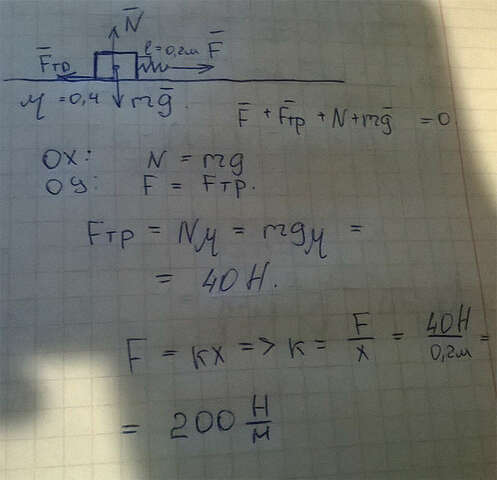 N̄
F̄тр l=0,2м F̄
μ=0,4 mḡ.
F̄ + F̄тр + N + mḡ = 0
OX: N = mg
OY: F = Fтр.
Fтр = Nμ = mgμ =
= 40 Н.
F = кх => к = F/х = 40Н/0,2м =
= 200 Н/м